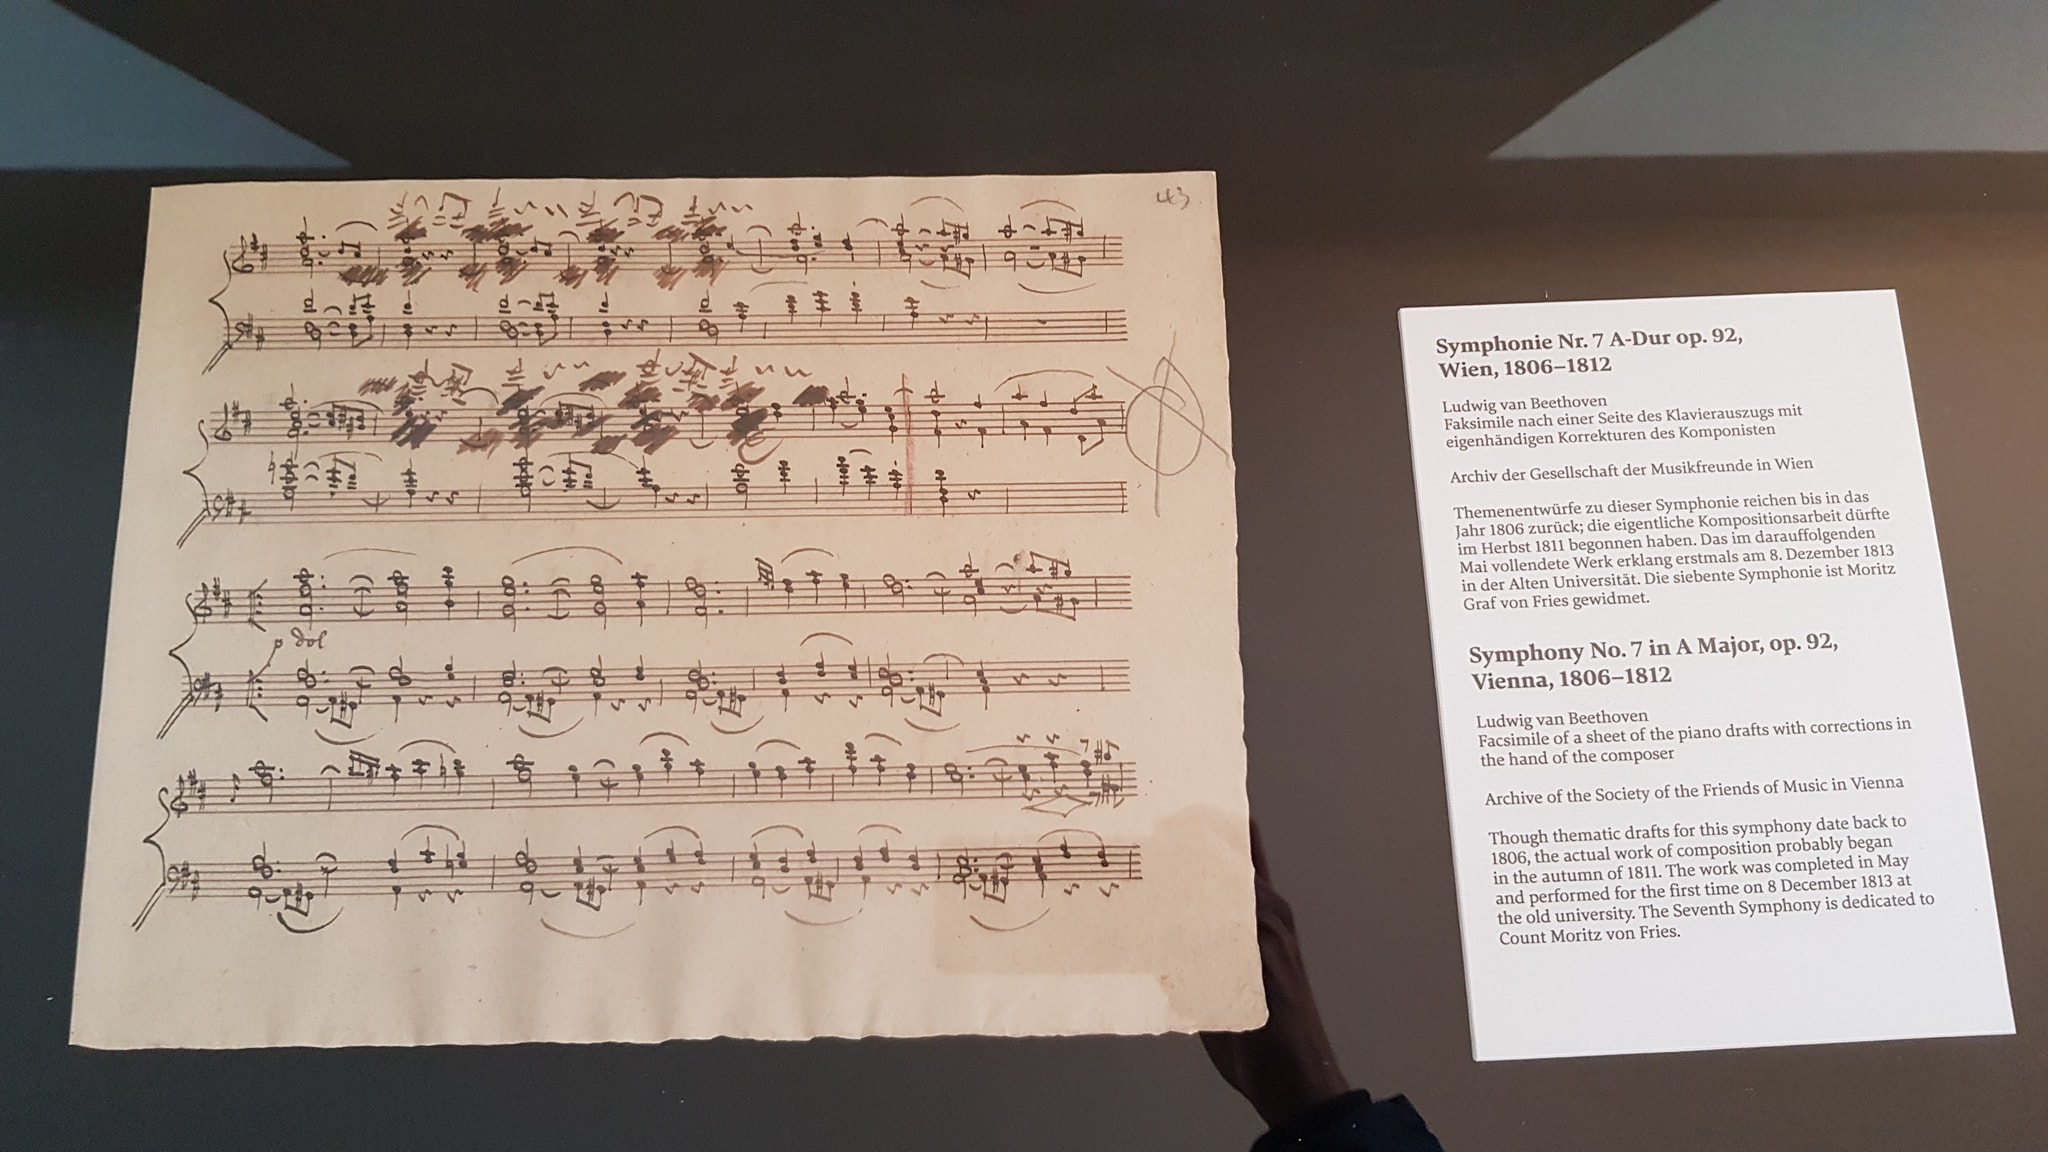 43
p dol
Symphonie Nr. 7 A-Dur op. 92,
Wien, 1806–1812
Ludwig van Beethoven
Faksimile nach einer Seite des Klavierauszugs mit
eigenhändigen Korrekturen des Komponisten
Archiv der Gesellschaft der Musikfreunde in Wien
Themenentwürfe zu dieser Symphonie reichen bis in das
Jahr 1806 zurück; die eigentliche Kompositionsarbeit dürfte
im Herbst 1811 begonnen haben. Das im darauffolgenden
Mai vollendete Werk erklang erstmals am 8. Dezember 1813
in der Alten Universität. Die siebente Symphonie ist Moritz
Graf von Fries gewidmet.
Symphony No. 7 in A Major, op. 92,
Vienna, 1806–1812
Ludwig van Beethoven
Facsimile of a sheet of the piano drafts with corrections in
the hand of the composer
Archive of the Society of the Friends of Music in Vienna
Though thematic drafts for this symphony date back to
1806, the actual work of composition probably began
in the autumn of 1811. The work was completed in May
and performed for the first time on 8 December 1813 at
the old university. The Seventh Symphony is dedicated to
Count Moritz von Fries.